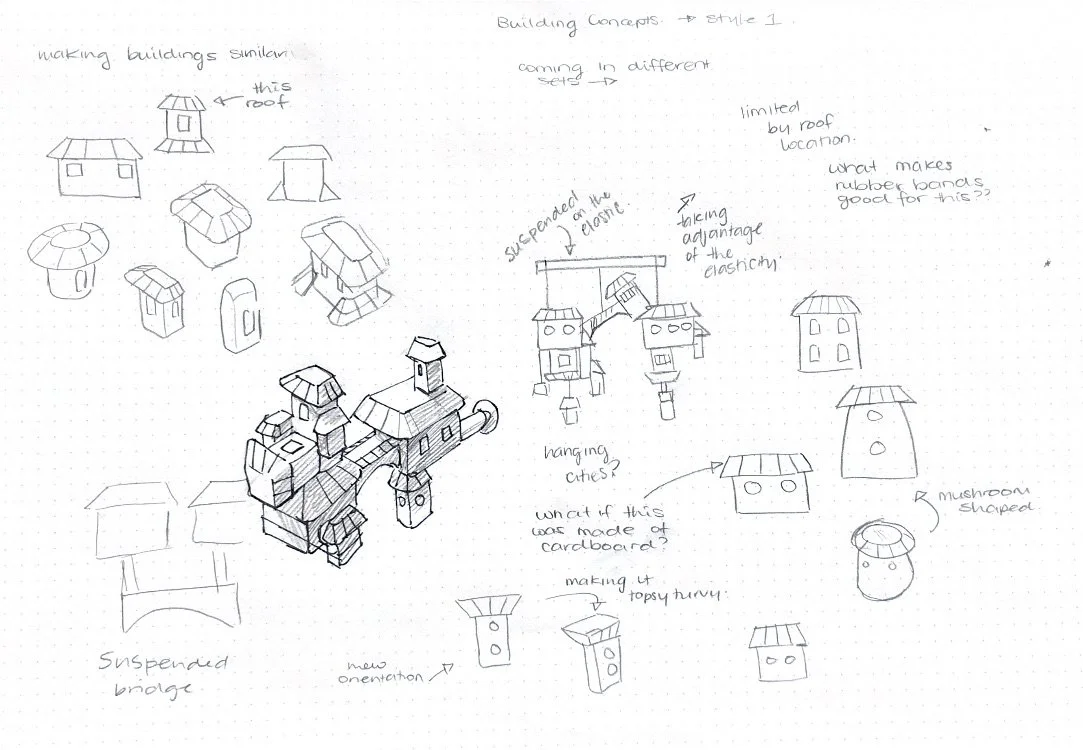 Building Concepts. → Style 1.
making buildings similar.
coming in different
sets →
this
roof.
limited
by roof
location.
what makes
rubber bands
good for this??
suspended
on the
elastic.
taking
advantage
of the
elasticity.
hanging
cities?
what if this
was made of
cardboard?
mushroom
shaped.
making it
topsy turvy.
new
orientation
Suspended
bridge